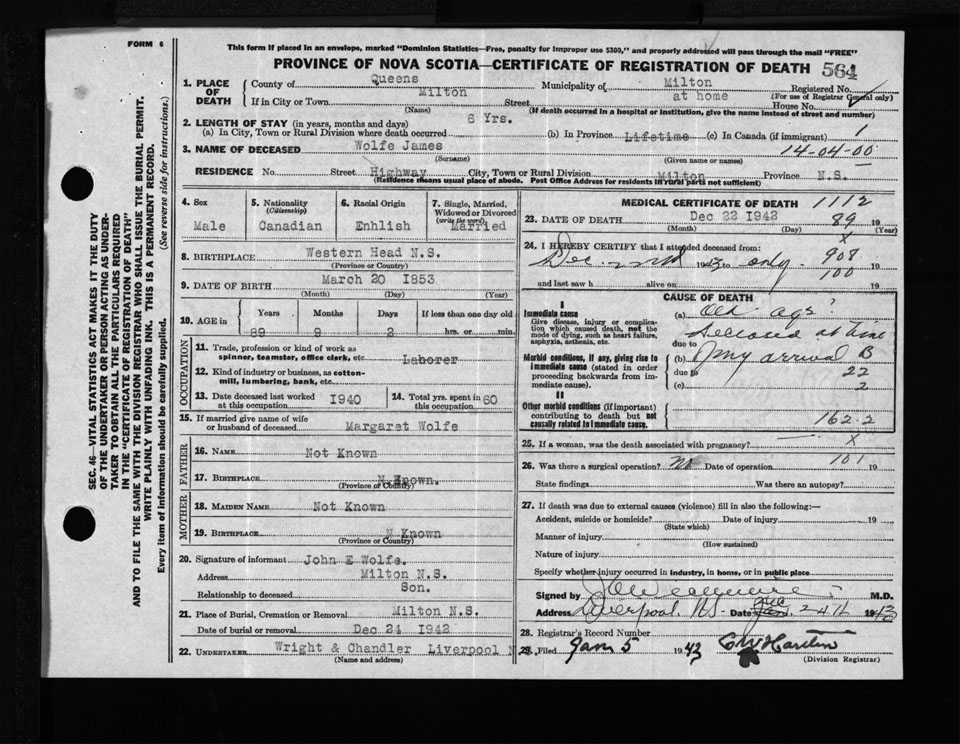 FORM 6
This form if placed in an envelope, marked "Dominion Statistics—Free, penalty for improper use $300," and properly addressed will pass through the mail "FREE"
PROVINCE OF NOVA SCOTIA—CERTIFICATE OF REGISTRATION OF DEATH 564
1. PLACE OF DEATH
County of Queens Municipality of Milton Registered No.
(For use of Registrar General only)
If in City or Town Milton Street at home House No.
(Name) (If death occurred in a hospital or institution, give the name instead of street and number)
2. LENGTH OF STAY (in years, months and days) 6 Yrs.
(a) In City, Town or Rural Division where death occurred (b) In Province Lifetime (c) In Canada (if immigrant) 1
3. NAME OF DECEASED Wolfe James 14-04-00
(Surname) (Given name or names)
RESIDENCE No. Street Highway City, Town or Rural Division Milton Province N.S.
(Residence means usual place of abode. Post Office Address for residents in rural parts not sufficient)
4. Sex Male
5. Nationality (Citizenship) Canadian
6. Racial Origin Enhlish
7. Single, Married, Widowed or Divorced (write the word) Married
8. BIRTHPLACE Western Head N.S.
(Province or Country)
9. DATE OF BIRTH March 20 1853
(Month) (Day) (Year)
10. AGE in Years Months Days If less than one day old
89 9 2 hrs. or min.
OCCUPATION
11. Trade, profession or kind of work as spinner, teamster, office clerk, etc Laborer
12. Kind of industry or business, as cotton-mill, lumbering, bank, etc.
13. Date deceased last worked at this occupation 1940
14. Total yrs. spent in this occupation 60
15. If married give name of wife or husband of deceased Margaret Wolfe
FATHER
16. NAME Not Known
17. BIRTHPLACE N Known.
(Province or Country)
MOTHER
18. MAIDEN NAME Not Known
19. BIRTHPLACE N Known
(Province or Country)
20. Signature of informant John E Wolfe.
Address Milton N.S.
Relationship to deceased Son.
21. Place of Burial, Cremation or Removal Milton N.S.
Date of burial or removal Dec 24 1942
22. UNDERTAKER Wright & Chandler Liverpool N
(Name and address)
MEDICAL CERTIFICATE OF DEATH 1112
23. DATE OF DEATH Dec 22 1942 89 19
(Month) (Day) (Year)
x
24. I HEREBY CERTIFY that I attended deceased from:
Dec. to only. 908 19
and last saw h alive on 100 19
CAUSE OF DEATH
I
Immediate cause
Give disease, injury or complication which caused death, not the mode of dying, such as heart failure, asphyxia, asthenia, etc.
(a) Old age
deceased at time
due to
Morbid conditions, if any, giving rise to immediate cause (stated in order proceeding backwards from immediate cause).
(b) my arrival B
due to 22
(c) 2
II
Other morbid conditions (if important) contributing to death but not causally related to immediate cause.
162.2
25. If a woman, was the death associated with pregnancy? x
26. Was there a surgical operation? no Date of operation 101 19
State findings Was there an autopsy?
27. If death was due to external causes (violence) fill in also the following:—
Accident, suicide or homicide? Date of injury 19
(State which)
Manner of injury
(How sustained)
Nature of injury
Specify whether injury occurred in industry, in home, or in public place
Signed by M.D.
Address Liverpool, NS Date Dec 24th 1943
28. Registrar's Record Number
29. Filed Jan 5 1943
(Division Registrar)
SEC. 46—VITAL STATISTICS ACT MAKES IT THE DUTY
OF THE UNDERTAKER OR PERSON ACTING AS UNDER-
TAKER TO OBTAIN ALL THE PARTICULARS REQUIRED
IN THE "CERTIFICATE OF REGISTRATION OF DEATH"
AND TO FILE THE SAME WITH THE DIVISION REGISTRAR WHO SHALL ISSUE THE BURIAL PERMIT.
WRITE PLAINLY WITH UNFADING INK. THIS IS A PERMANENT RECORD.
Every item of information should be carefully supplied. (See reverse side for instructions.)